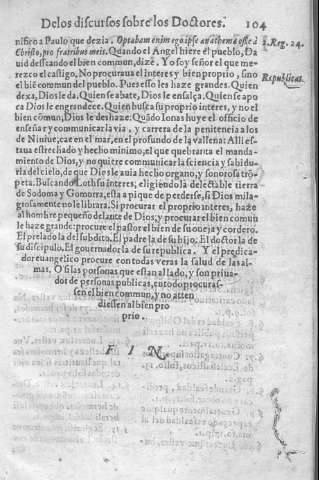 De los discursos sobre los Doctores. 104
nifico a Paulo que dezia. Optabam enim ego ipse anathema esse à
Christo, pro fratribus meis. Quando el Angel hiere èl pueblo, Da
uid desseando el bien commun, dizē. Yo soy señor el que me-
rezco el castigo. No procuraua el interes y bien proprio, sino
el biē comun del pueblo. Pues esso les haze grandes. Quien
dexa, Dios le da. Quien se abate, Dios le ensalça. Quien se apo
ca Dios le engrandece. Quien busca su proprio interes, y no el
bien cōmun, Dios le deshaze. Quādo Ionas huye el officio de
enseñar y communicar la via, y carrera de la penitencia a los
de Niniue, cae en el mar, en el profundo de la vallena: Alli es-
taua estrechado y hecho minimo, el que quebranta el manda-
miento de Dios, y no quitre communicar la sciencia y sabidu-
ria del cielo, de que Dios le auia hecho organo, y sonorosa trō-
peta. Buscando Loth su interes, eligiendo la delectable tierra
de Sodoma y Gomorra, esta a pique de perderse, si Dios mila-
grosamente no le librara. Si procurar el proprio interes, haze
al hombre pequeño delante de Dios, y procurar el bien comun
le haze grande: procure el pastor el bien de su oueja y cordero.
El prelado la del subdito. El padre la de su hijo. El doctor la de
su discipulo. El gouernador la de su republica. Y el predica-
dor euangelico procure con todas veras la salud de las al-
mas. O si las personas que estan al lado, y son priua-
dos de personas publicas, en todo procuras-
sen el bien commun, y no atten
diessen al bien pro
prio.
F I N.
2. Reg. 24.
Republicas.